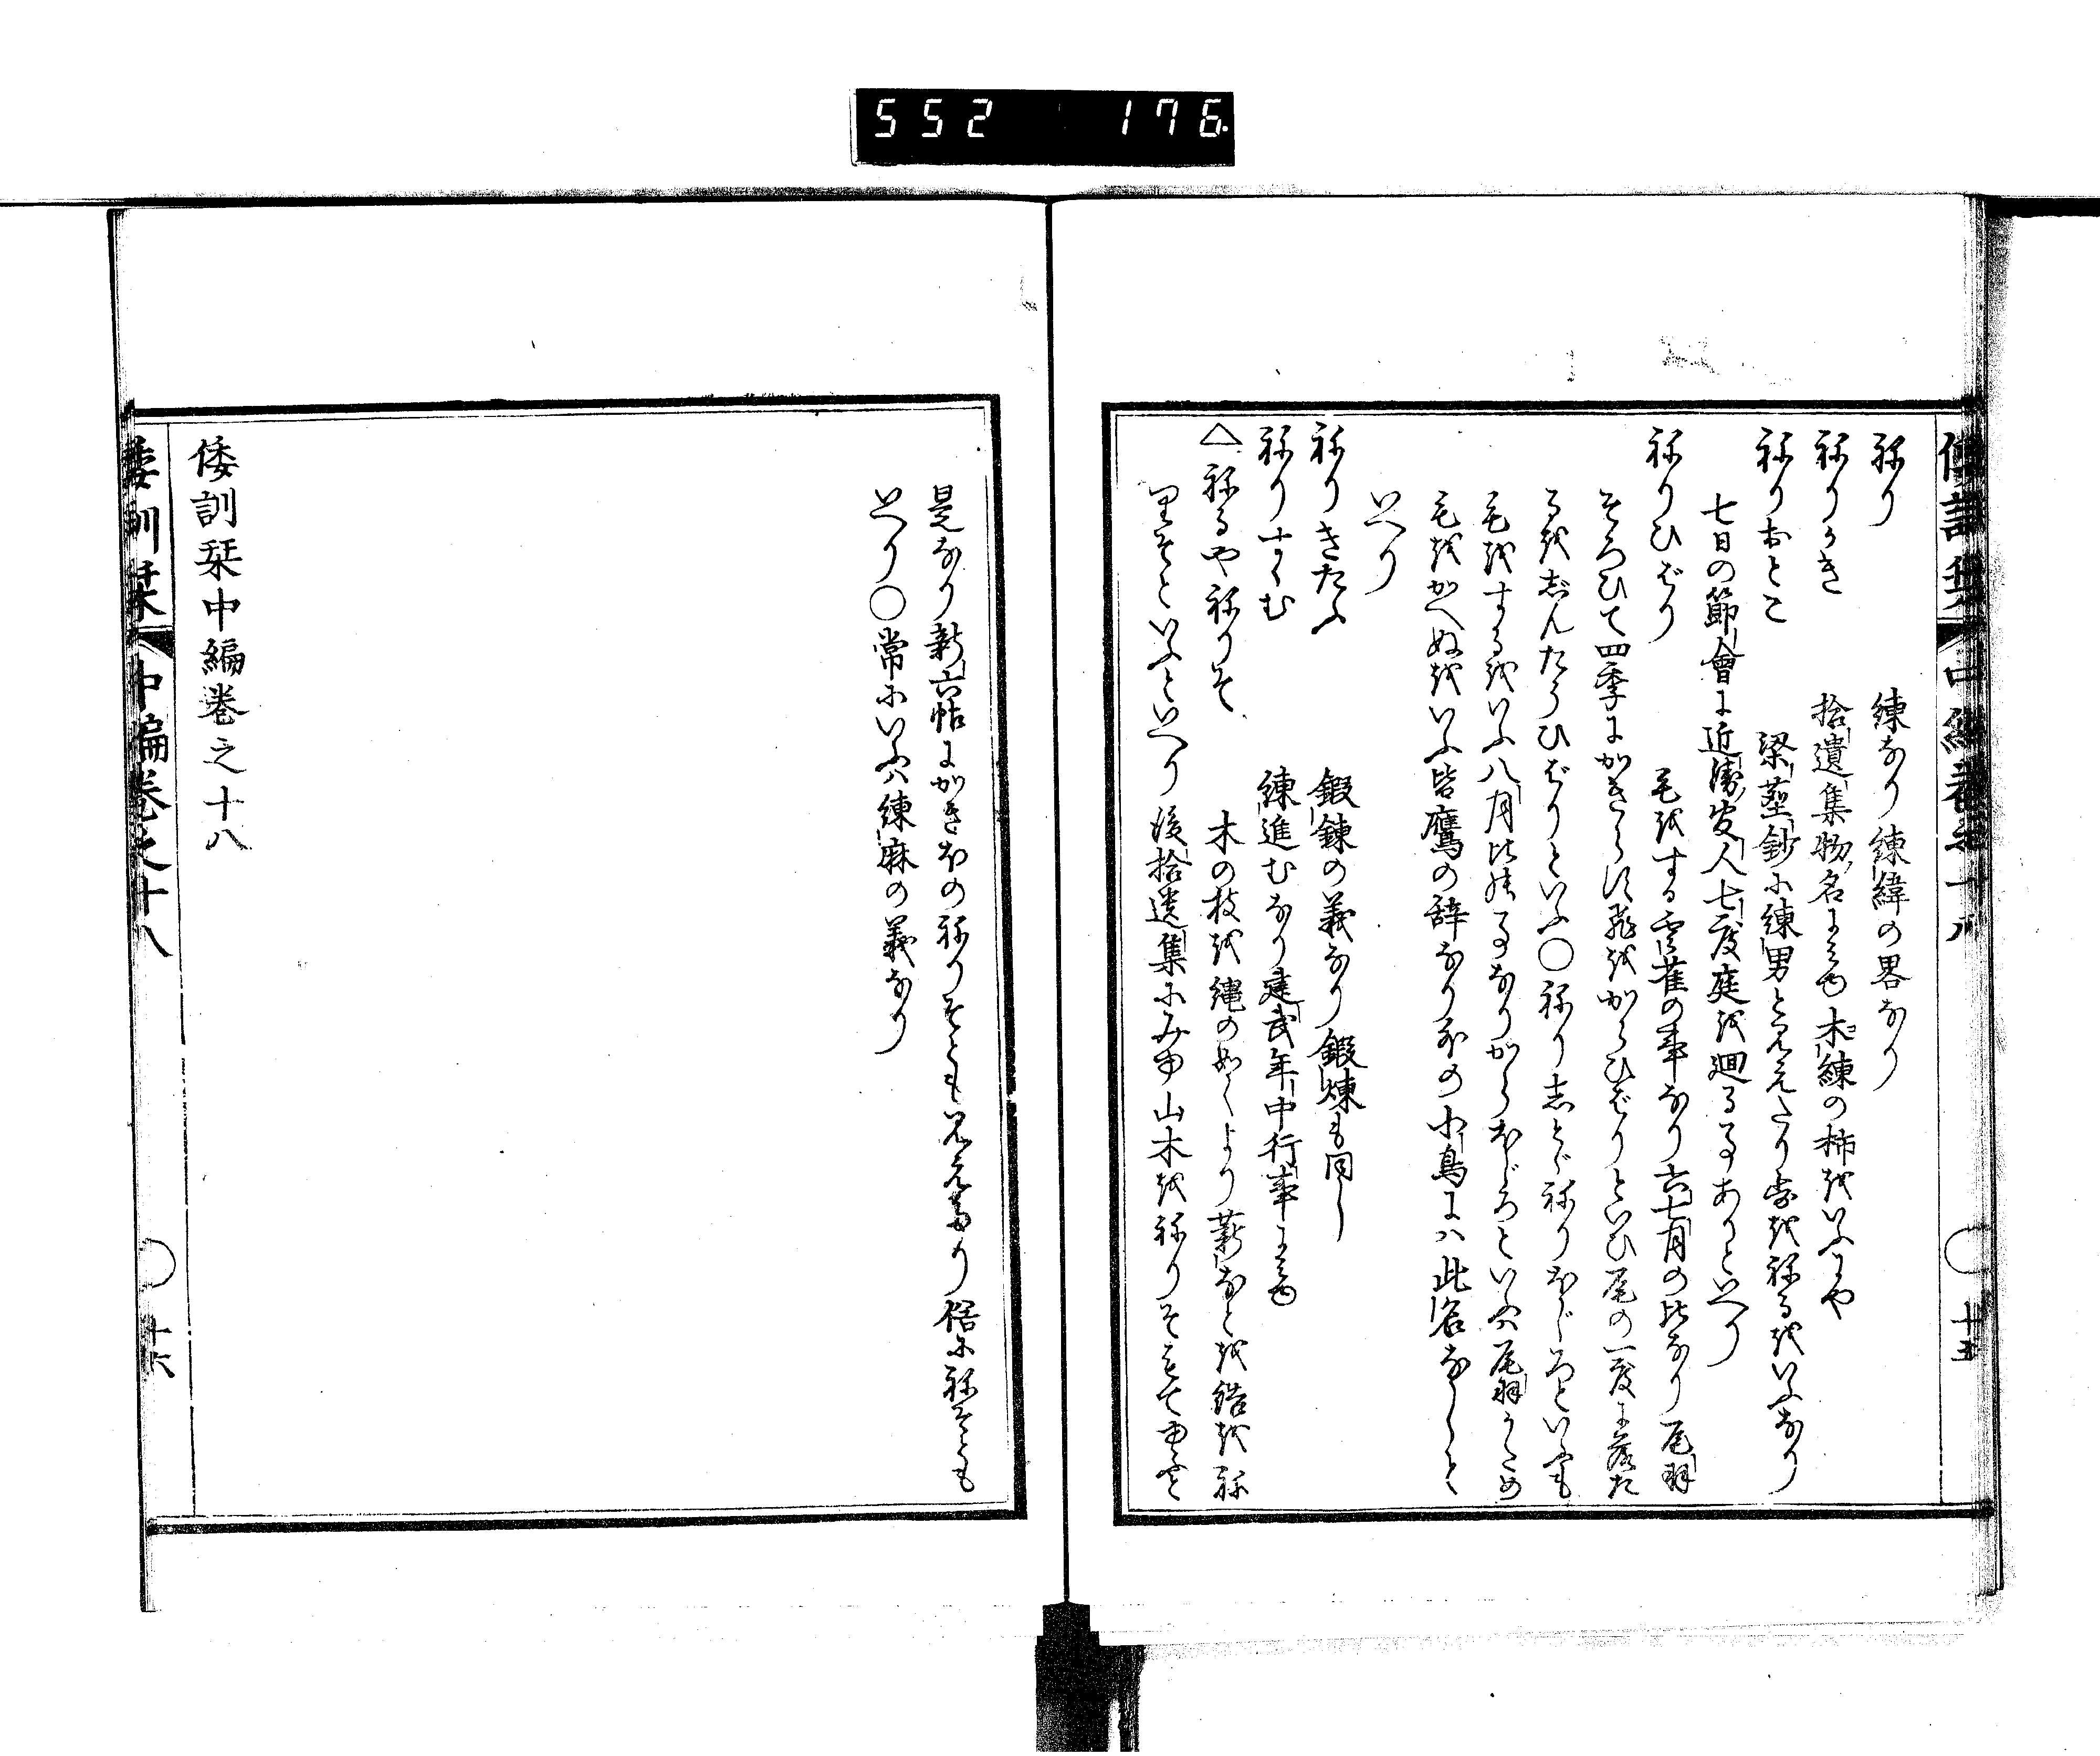 552 176
倭訓栞 中編巻之十八 ○ 十五
ねり 練なり練緯の畧なり
ねりかき 拾遺集物名に見ゆ木練の柿をいふにや
ねりおとこ 梁塵鈔に練男と見えたり步をねるをいふなり
七日の節會に近衛安人七度庭を廻る事ありといへり
ねりひばり 毛をする雲雀の事なり六七月の比なり尾羽
そろひて四季にかきらす飛をからひばりといひ尾の一度に落た
るをぢんたうひばりといふ○ねり志とゞねりほゝじろといふも
毛をするをいふ八月比する事なりからほゝじろといふハ尾羽うちめ
毛をかへぬをいふ皆鷹の辞なり外の小鳥にハ此名なしと
いへり
ねりきたふ 鍛錬の義なり鍛煉も同し
ねりすゝむ 練進むなり建武年中行事に見ゆ
△ねるやねりそ 木の枝を縄の如くより薪なとを結をね
りそといふといへり後拾遺集にみ山木をねりそもてゆふと
是なり新六帖にかきほのねりそとも見えたり俗にねそとも
いへり○常にいふハ練麻の義なり
倭訓栞中編巻之十八
倭訓栞 中編巻之十八 ○ 十六